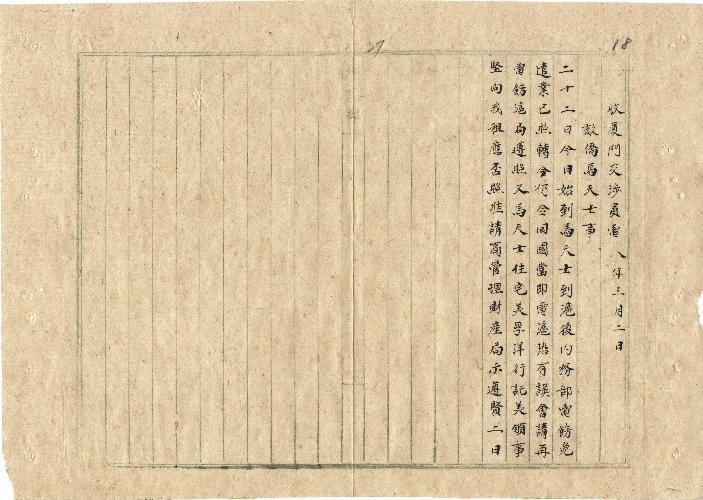 18
27
收厦門交涉員電 八年三月二日
敵僑馬天士事
二十二日今日始到馬天士到滬後內務部電飭免
遣業已照轉今仍令回國當即電滬恐有誤會請再
電飭滬局遵照又馬天士住宅美孚洋行託美領事
堅向我租應否照准請商管理財產局示遵賢二日